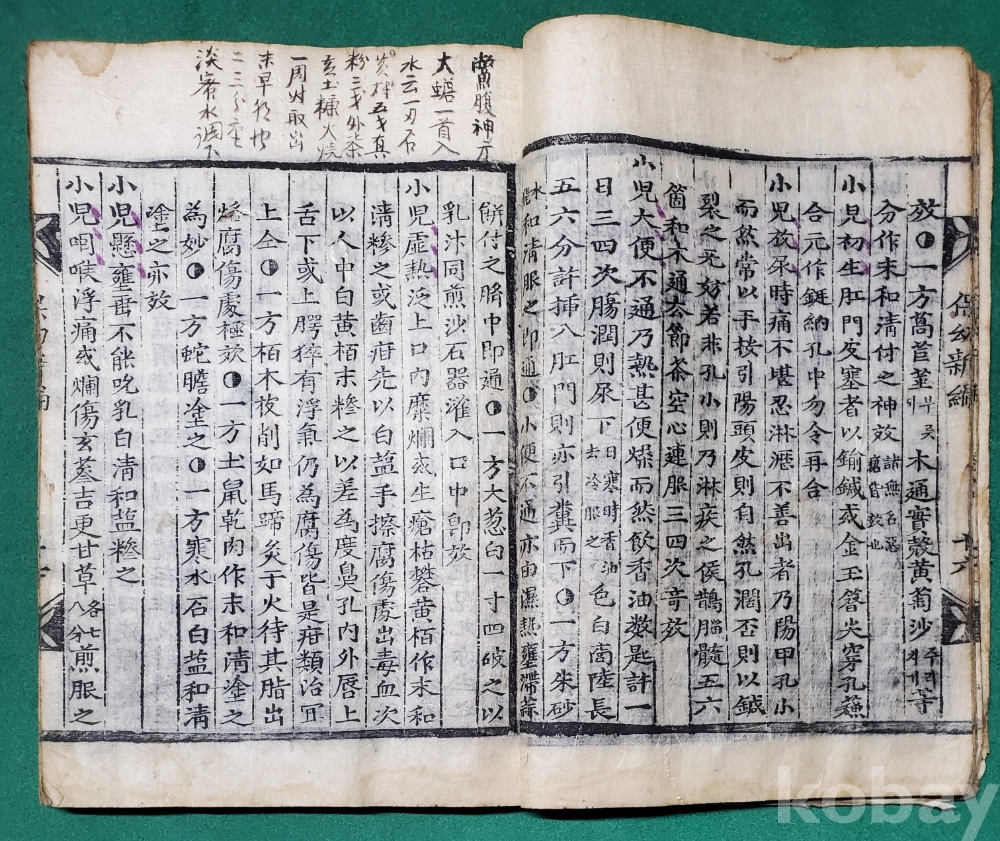 效○一方萵苣菫부롯木通實殼黃萄沙주려씨기等
分作末和清付之神效諸無名惡瘡皆效也
小兒初生肛門皮塞者以鍮鍼或金玉簪尖穿孔蘓
合元作鋌納孔中勿令再合
小兒放尿時痛不堪忍淋瀝不善出者乃陽甲孔小
而然常以手按引陽頭皮則自然孔濶否則以鍼
裂之无妨若非孔小則乃淋疾之侯鵲腦髓五六
箇和木通去節茶空心連服三四次竒效
小兒大便不通乃熱甚便燥而然飲香油數匙許一
日三四次腸潤則尿下日寒時香油去冷服之色白商陸長
五六分許揷入肛門則亦引糞而下○一方朱砂
水飛和清服之即通○小便不通亦由濕熱壅滯蒜
餠付之臍中即通○一方大葱白一寸四破之以
乳汁同煎沙石器灌入口中卽效
小兒虛熱泛上口內糜爛或生瘡枯礬黃栢作末和
清糝之或齒疳先以白盐手擦腐傷處出毒血次
以人中白黃栢末糝之以差為度鼻孔內外唇上
舌下或上腭猝有浮氣仍為腐傷皆是疳類治冝
上仝○一方栢木枝削如馬蹄炙于火待其脂出
燒腐傷處極效○一方土鼠乾肉作末和清塗之
為妙○一方蛇膽塗之○一方寒水石白盐和清
塗之亦效
小兒懸壅垂不能吃乳白清和盐糝之
小兒咽喉浮痛或爛傷玄蔘吉更甘草各七八分煎服之
腹神方
大蟾一首入
水云一刃石
五戔真
粉三戔外柒
黃土糠火燒
一周时取出
末早朝
二三分重
淡密水調下
保幼新編
十六